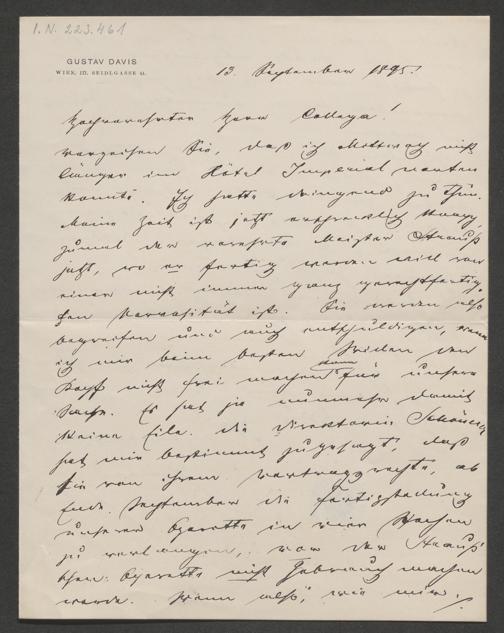 I.N. 223.461
GUSTAV DAVIS
WIEN, III. SEIDLGASSE
13. September 1895.
Hochverehrter Herr Collega!
verzeihen Sie, daß ich Mittwoch nicht
länger im Hôtel Imperial warten
konnte. Ich hatte dringend zu thun.
Meine Zeit ist jetzt erschrecklich knapp,
zumal der verehrte Meister Strauß
jetzt, wo er fertig werden will von
einer nicht immer ganz gerechtfertig-
ten Nervosität ist. Sie werden also
begreifen und auch entschuldigen, wenn
ich mir beim besten Willen den
Kopf nicht frei machen kann für unsere
Sache. Es hat ja nunmehr damit
keine Eile. Die Direktorin Schönerer
hat mir bestimmt zugesagt, daß
sie von ihrem Vertragsrechte, ab
Ende September die Fertigstellung
unserer Operette in vier Wochen
zu verlangen, vor der Strauß'
schen Operette nicht Gebrauch machen
werde. Wenn also, wie mir